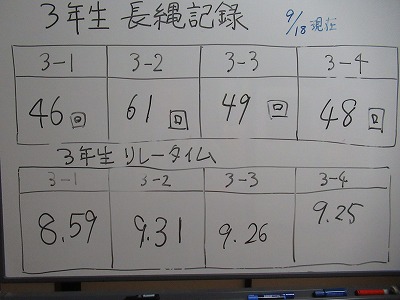 3年生 長縄記録 9/18 現在
3-1 3-2 3-3 3-4
46回 61回 49回 48回
3年生 リレータイム
3-1 3-2 3-3 3-4
8.59 9.31 9.26 9.25